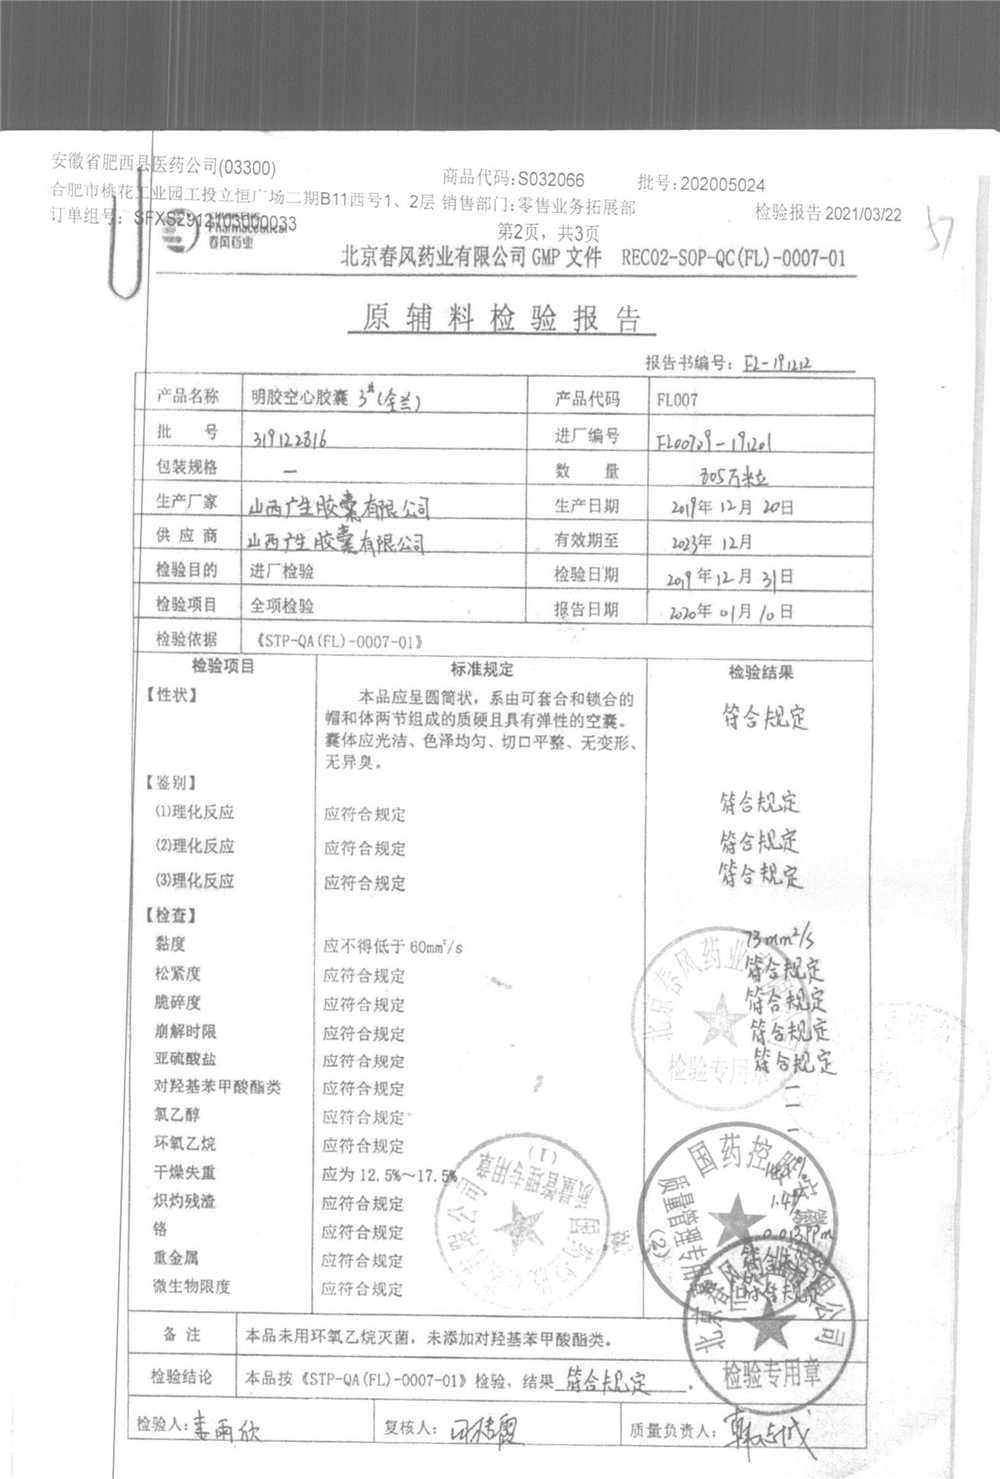 安徽省肥西县医药公司(03300)
商品代码:S032066 批号:202005024
合肥市桃花工业园工投立恒广场二期B11西号1、2层 销售部门:零售业务拓展部
检验报告2021/03/22
订单组号: SFXS2912103000033
Pharmaceutical
春风药业
第2页,共3页
57
北京春风药业有限公司GMP文件 REC02-SOP-QC(FL)-0007-01
原辅料检验报告
报告书编号: FL-191212
产品名称 明胶空心胶囊 3#(全兰) 产品代码 FL007
批号 319122316 进厂编号 FL00729-191201
包装规格 — 数量 305万粒
生产厂家 山西广生胶囊有限公司 生产日期 2019年12月20日
供应商 山西广生胶囊有限公司 有效期至 2023年12月
检验目的 进厂检验 检验日期 2019年12月31日
检验项目 全项检验 报告日期 2020年01月10日
检验依据 《STP-QA(FL)-0007-01》
检验项目 标准规定 检验结果
【性状】 本品应呈圆筒状,系由可套合和锁合的 符合规定
帽和体两节组成的质硬且具有弹性的空囊。
囊体应光洁、色泽均匀、切口平整、无变形、
无异臭。
【鉴别】
(1)理化反应 应符合规定 符合规定
(2)理化反应 应符合规定 符合规定
(3)理化反应 应符合规定 符合规定
【检查】
黏度 应不得低于60mm²/s 73mm²/s
松紧度 应符合规定 符合规定
脆碎度 应符合规定 符合规定
崩解时限 应符合规定 符合规定
亚硫酸盐 应符合规定 符合规定
对羟基苯甲酸酯类 应符合规定 —
氯乙醇 应符合规定 —
环氧乙烷 应符合规定 —
干燥失重 应为12.5%～17.5%
炽灼残渣 应符合规定 1.4%
铬 应符合规定 0.013ppm
重金属 应符合规定 符合规定
微生物限度 应符合规定 符合规定
北京春风药业
检验专用章
质量管理专用章
(1)
国药控股
质量管理专用
(2)
北京春风
公司
检验专用章
备注 本品未用环氧乙烷灭菌,未添加对羟基苯甲酸酯类。
检验结论 本品按《STP-QA(FL)-0007-01》检验,结果 符合规定 。
检验人: 李雨欣 复核人: 质量负责人: